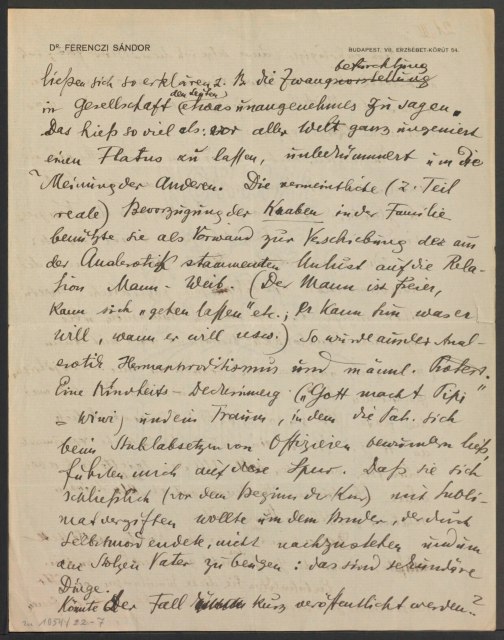 Dr. FERENCZI SÁNDOR
BUDAPEST, VII. ERZSÉBET-KÖRÚT 54.
befürchtung
ließen sich so erklären z. B. die Zwangsvorstellung
den Leuten
in Gesellschaft etwas unangenehmes zu sagen.
Das hieß so viel als: vor aller Welt ganz ungeniert
einen Flatus zu lassen, unbekümmert um die
Meinung der Anderen. Die vermeintliche (z. Teil
reale) Bevorzugung der Knaben in der Familie
benützte sie als Vorwand zur Verschiebung der aus
der Analerotik stammenden Unlust auf die Rela-
tion Mann - Weib. (Der Mann ist freier,
kann sich „gehen lassen" etc.; Er kann tun was er
will, wann er will usw.) So wurde aus der Anal-
erotik Hermaphroditismus und männl. Protest.
Eine Kindheits-Deckerinnerg („Gott macht Pipi"
= wiwi) und ein Traum, in dem die Pat. sich
beim Stuhlabsetzen von Offizieren bewundern ließ,
führten mich auf diese Spur. Daß sie sich
schließlich (vor dem Beginn der Kur) mit Subli-
mat vergiften wollte um dem Bruder, der durch
Selbstmord endete, nicht nachzustehen und um
den stolzen Vater zu beugen: das sind sekundäre
Dinge.
Könnte der Fall kurz veröffentlicht werden?
1054/22-7